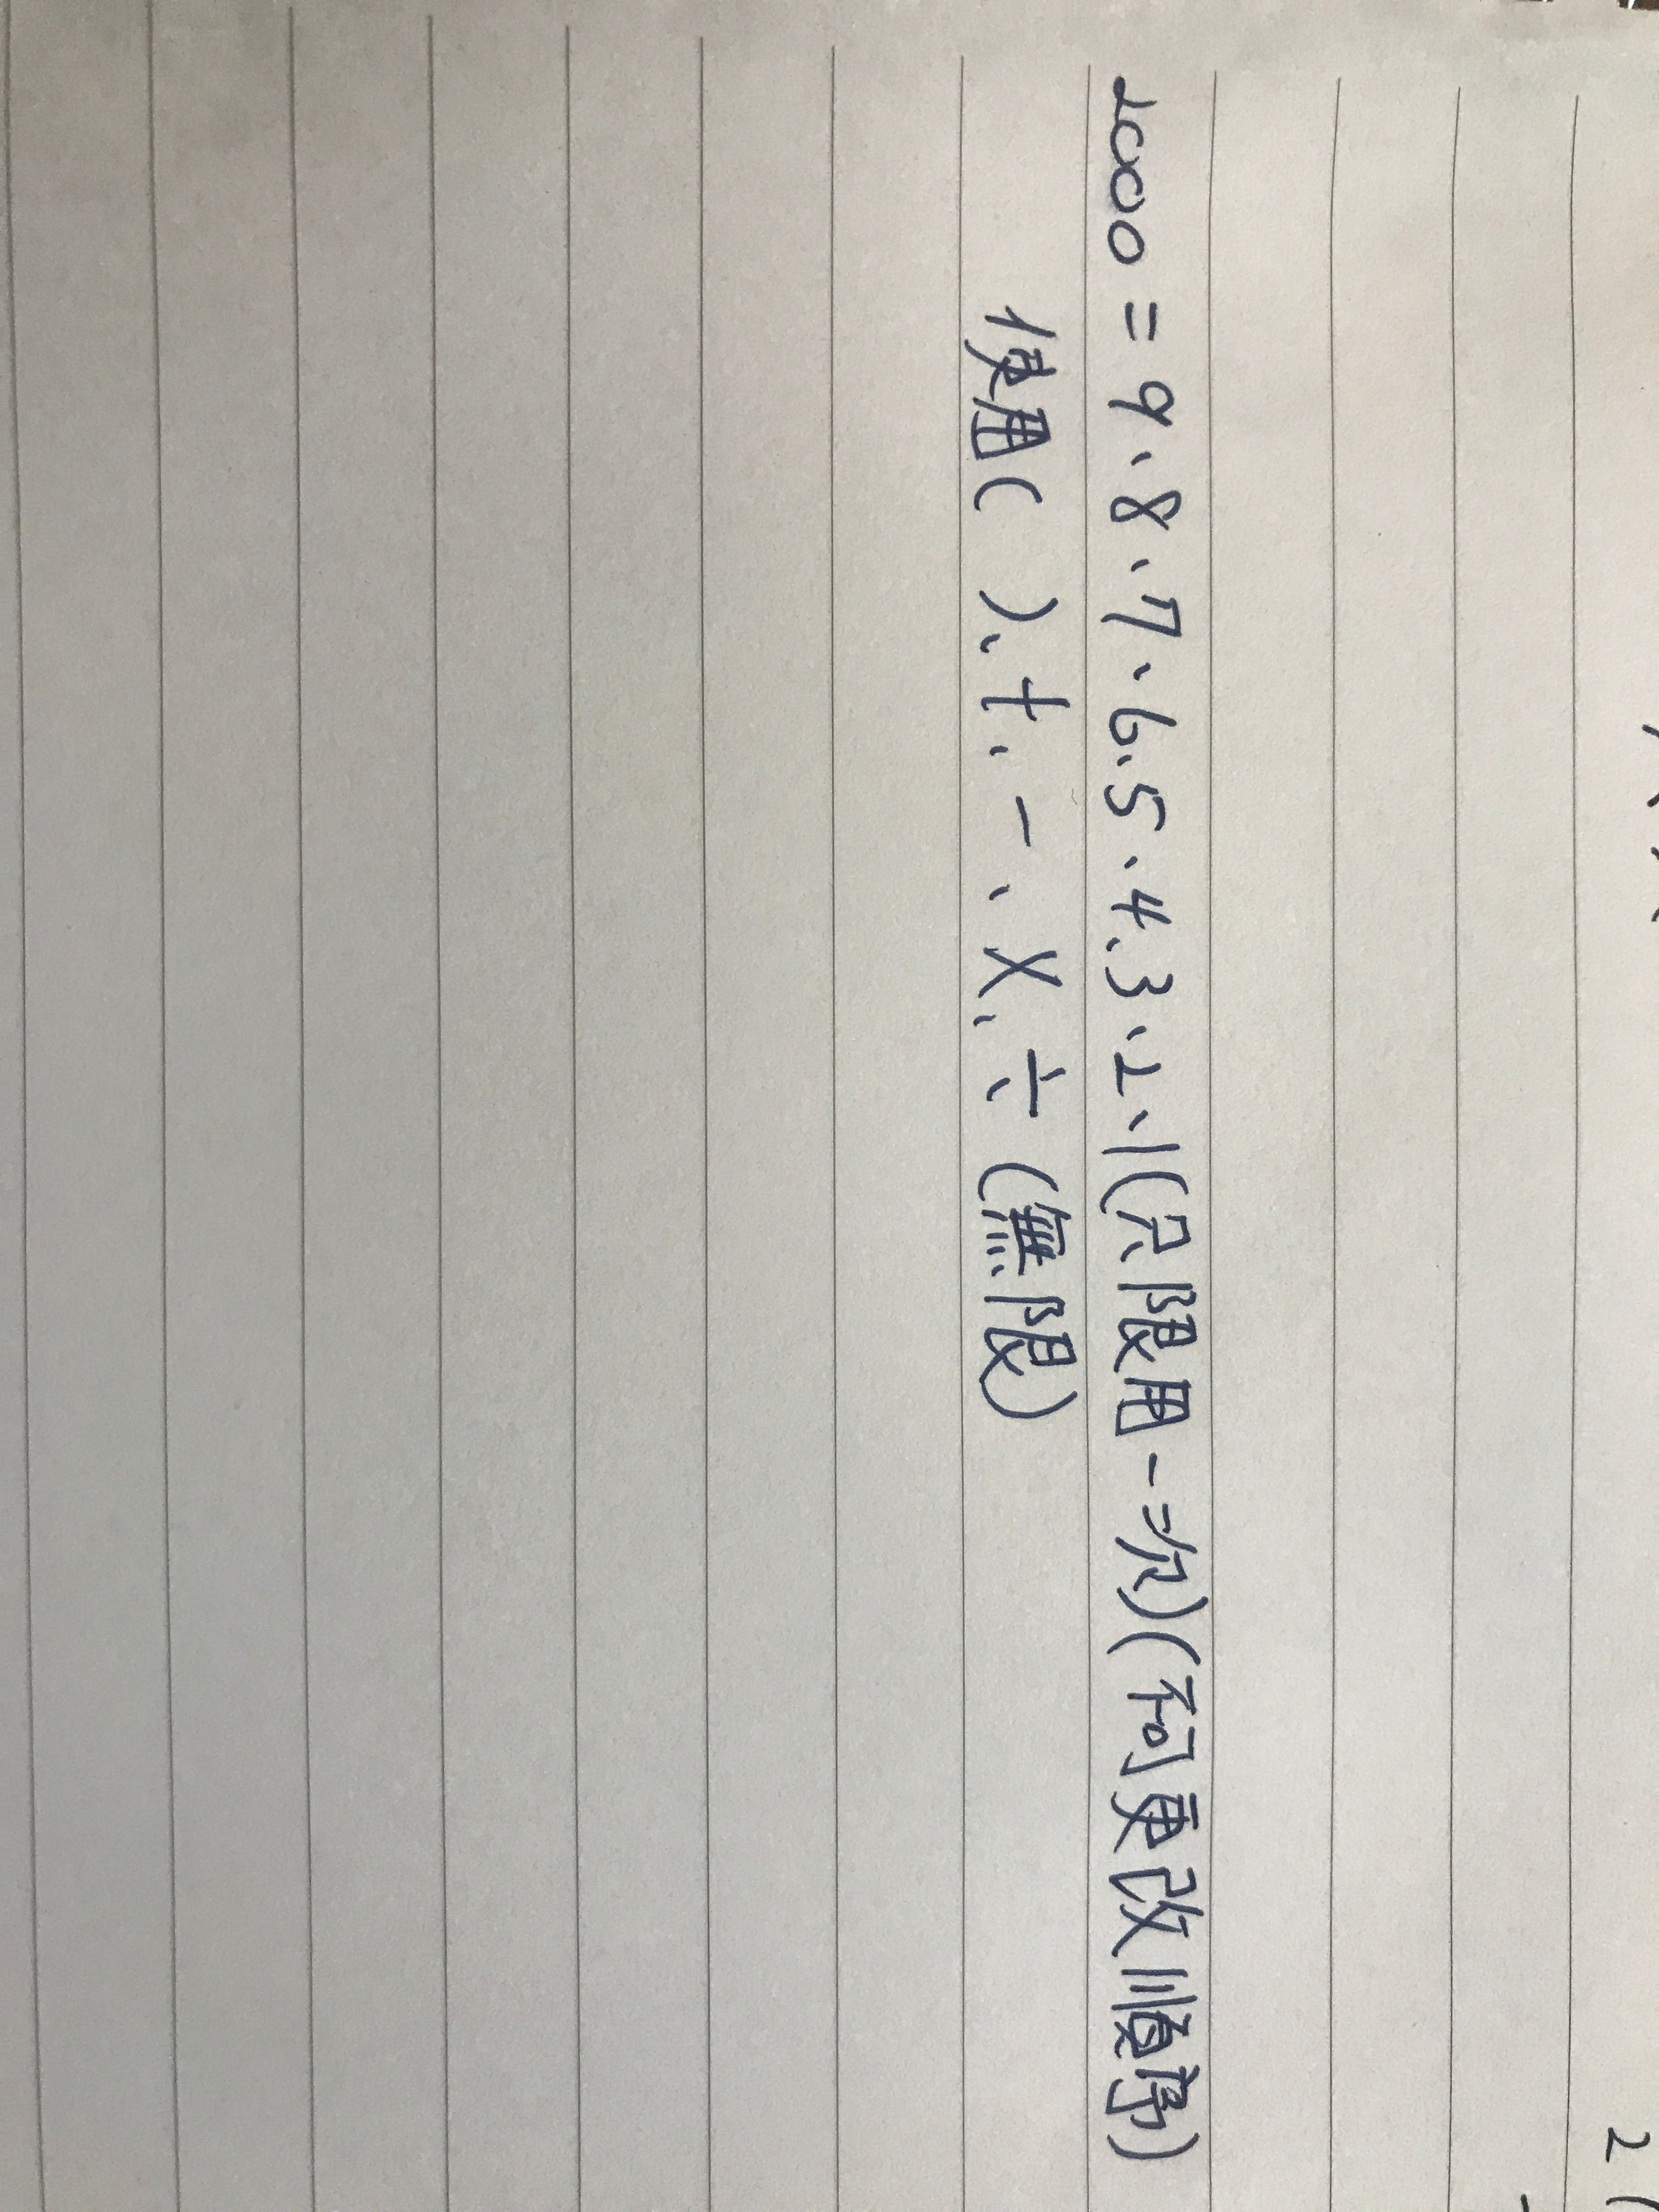 2000 = 9、8、7、6、5、4、3、2、1(只限用一次)(可更改順序)
使用( )、+、-、X、÷(無限)
2